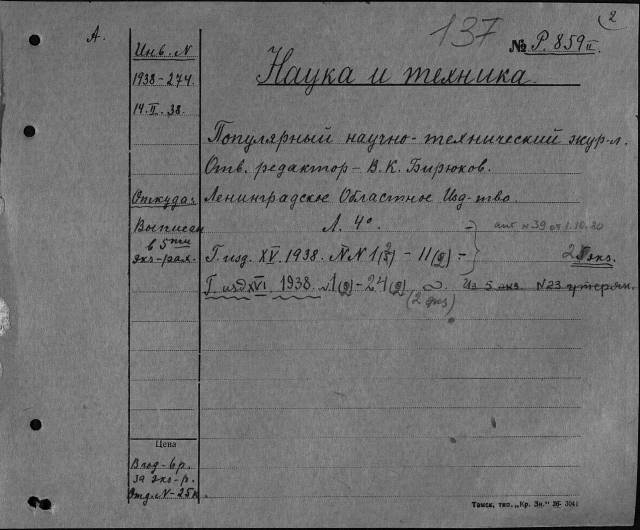 2
А.
137
№ Р. 859 II
Инв. N
1938-274
14.II.38.
Наука и техника.
Популярный научно-технический журл.
Отв. редактор - В.К. Бирюков.
Откуда
Ленинградское Областное Изд-тво.
Выписан
в 5ти
экз-рах.
Л. 4°
акт N 39 от 1.10.20
Г. изд. XV. 1938. NN 1(2) - 11(2) =
2 экз.
Г. изд XVI. 1938. 1(2) - 24(2)
Из 5 экз. N23 утерян.
(2 экз)
Цена
В год - 6 р.
за экз-р.
Отд. N - 25к.
Томск, тип. „Кр. Зн." 36- 3041